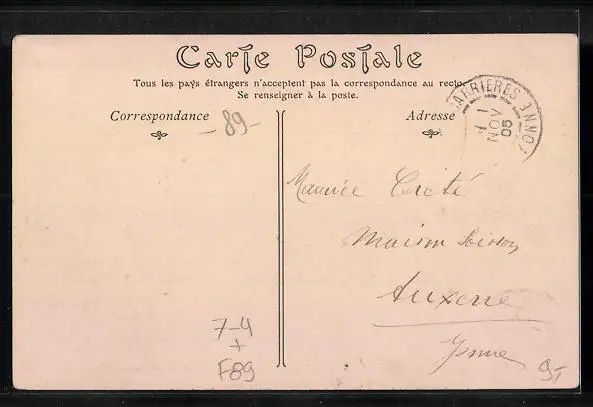 Carte Postale
Tous les pays étrangers n'acceptent pas la correspondance au recto.
Se renseigner à la poste.
Correspondance
Adresse
-89-
ARRIERES
YONNE
1
NOV
05
Maurice Croté
Maison Soisson
Auxerre
Yonne
7-4
+
F89